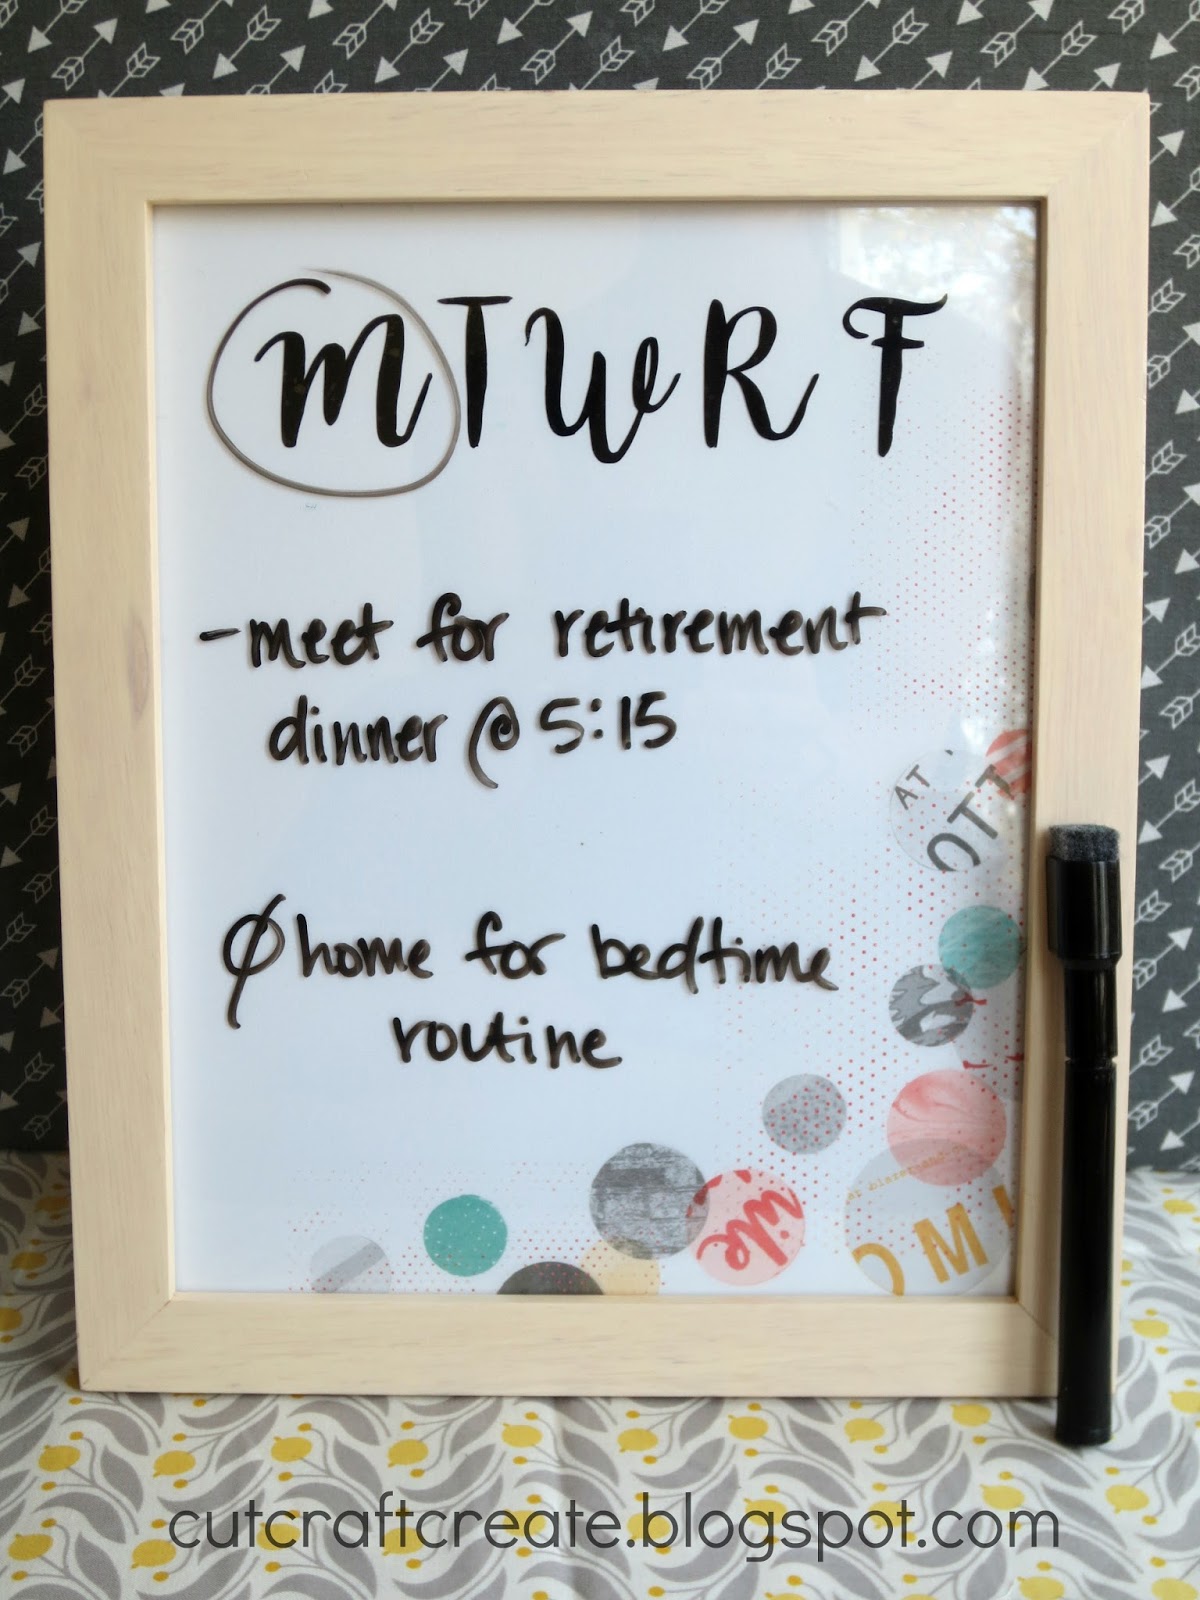 M T W R F
-meet for retirement
dinner @ 5:15
AT
OTT
Ø home for bedtime
routine
ile
cutcraftcreate.blogspot.com